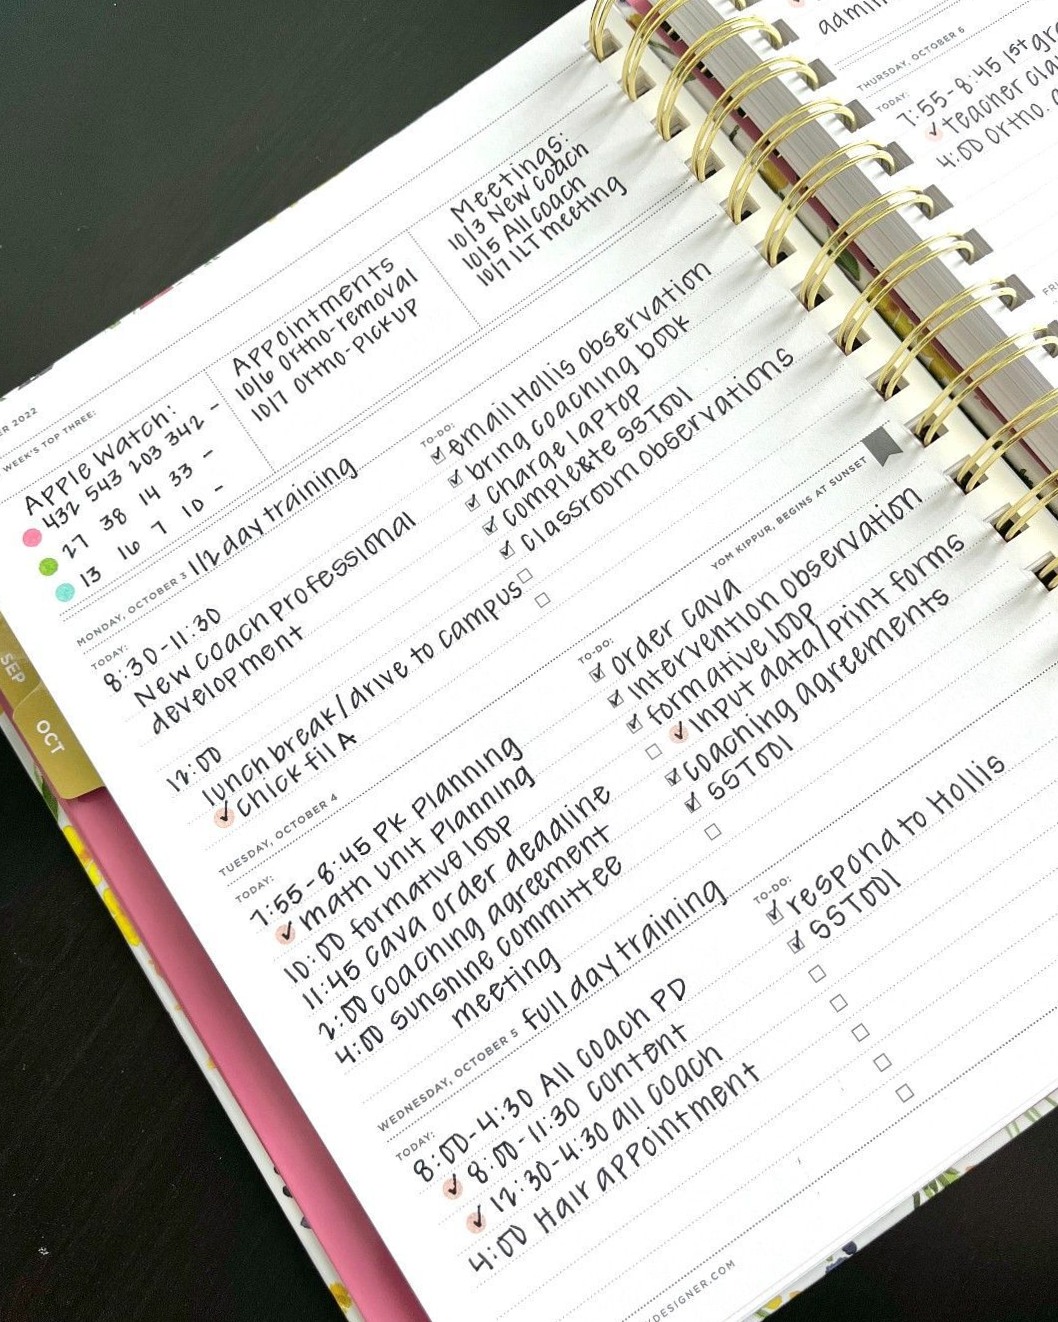 ER 2022
WEEK'S TOP THREE:
Apple Watch:
432 543 203 342 -
27 38 14 33 -
13 16 7 10 -
Appointments
10/6 Ortho-removal
10/7 Ortho-PICKUP
Meetings:
10/3 New Coach
10/5 All coach
10/7 ILT meeting
MONDAY, OCTOBER 3 1/2 day training
TODAY:
8:30-11:30
New coach professional
development
12:00
lunch break/drive to campus
✓ chick fil A
TO-DO:
email Hollis observation
bring coaching book
charge laptop
complete SSTool
classroom observations
TUESDAY, OCTOBER 4
YOM KIPPUR, BEGINS AT SUNSET
TODAY:
7:55-8:45 PK Planning
✓ math unit Planning
10:00 formative loop
11:45 cava order deadline
2:00 coaching agreement
4:00 sunshine committee
meeting
TO-DO:
order cava
intervention observation
formative loop
✓ input data/print forms
coaching agreements
SSTool
WEDNESDAY, OCTOBER 5 full day training
TODAY:
8:00-4:30 All coach PD
✓ 8:00-11:30 content
✓ 12:30-4:30 all coach
4:00 Hair appointment
TO-DO:
respond to Hollis
SSTool
DESIGNER.COM
SEP
OCT
THURSDAY, OCTOBER 6
TODAY:
7:55-8:45 1st gr
✓ teacher cla
4:00 Ortho.